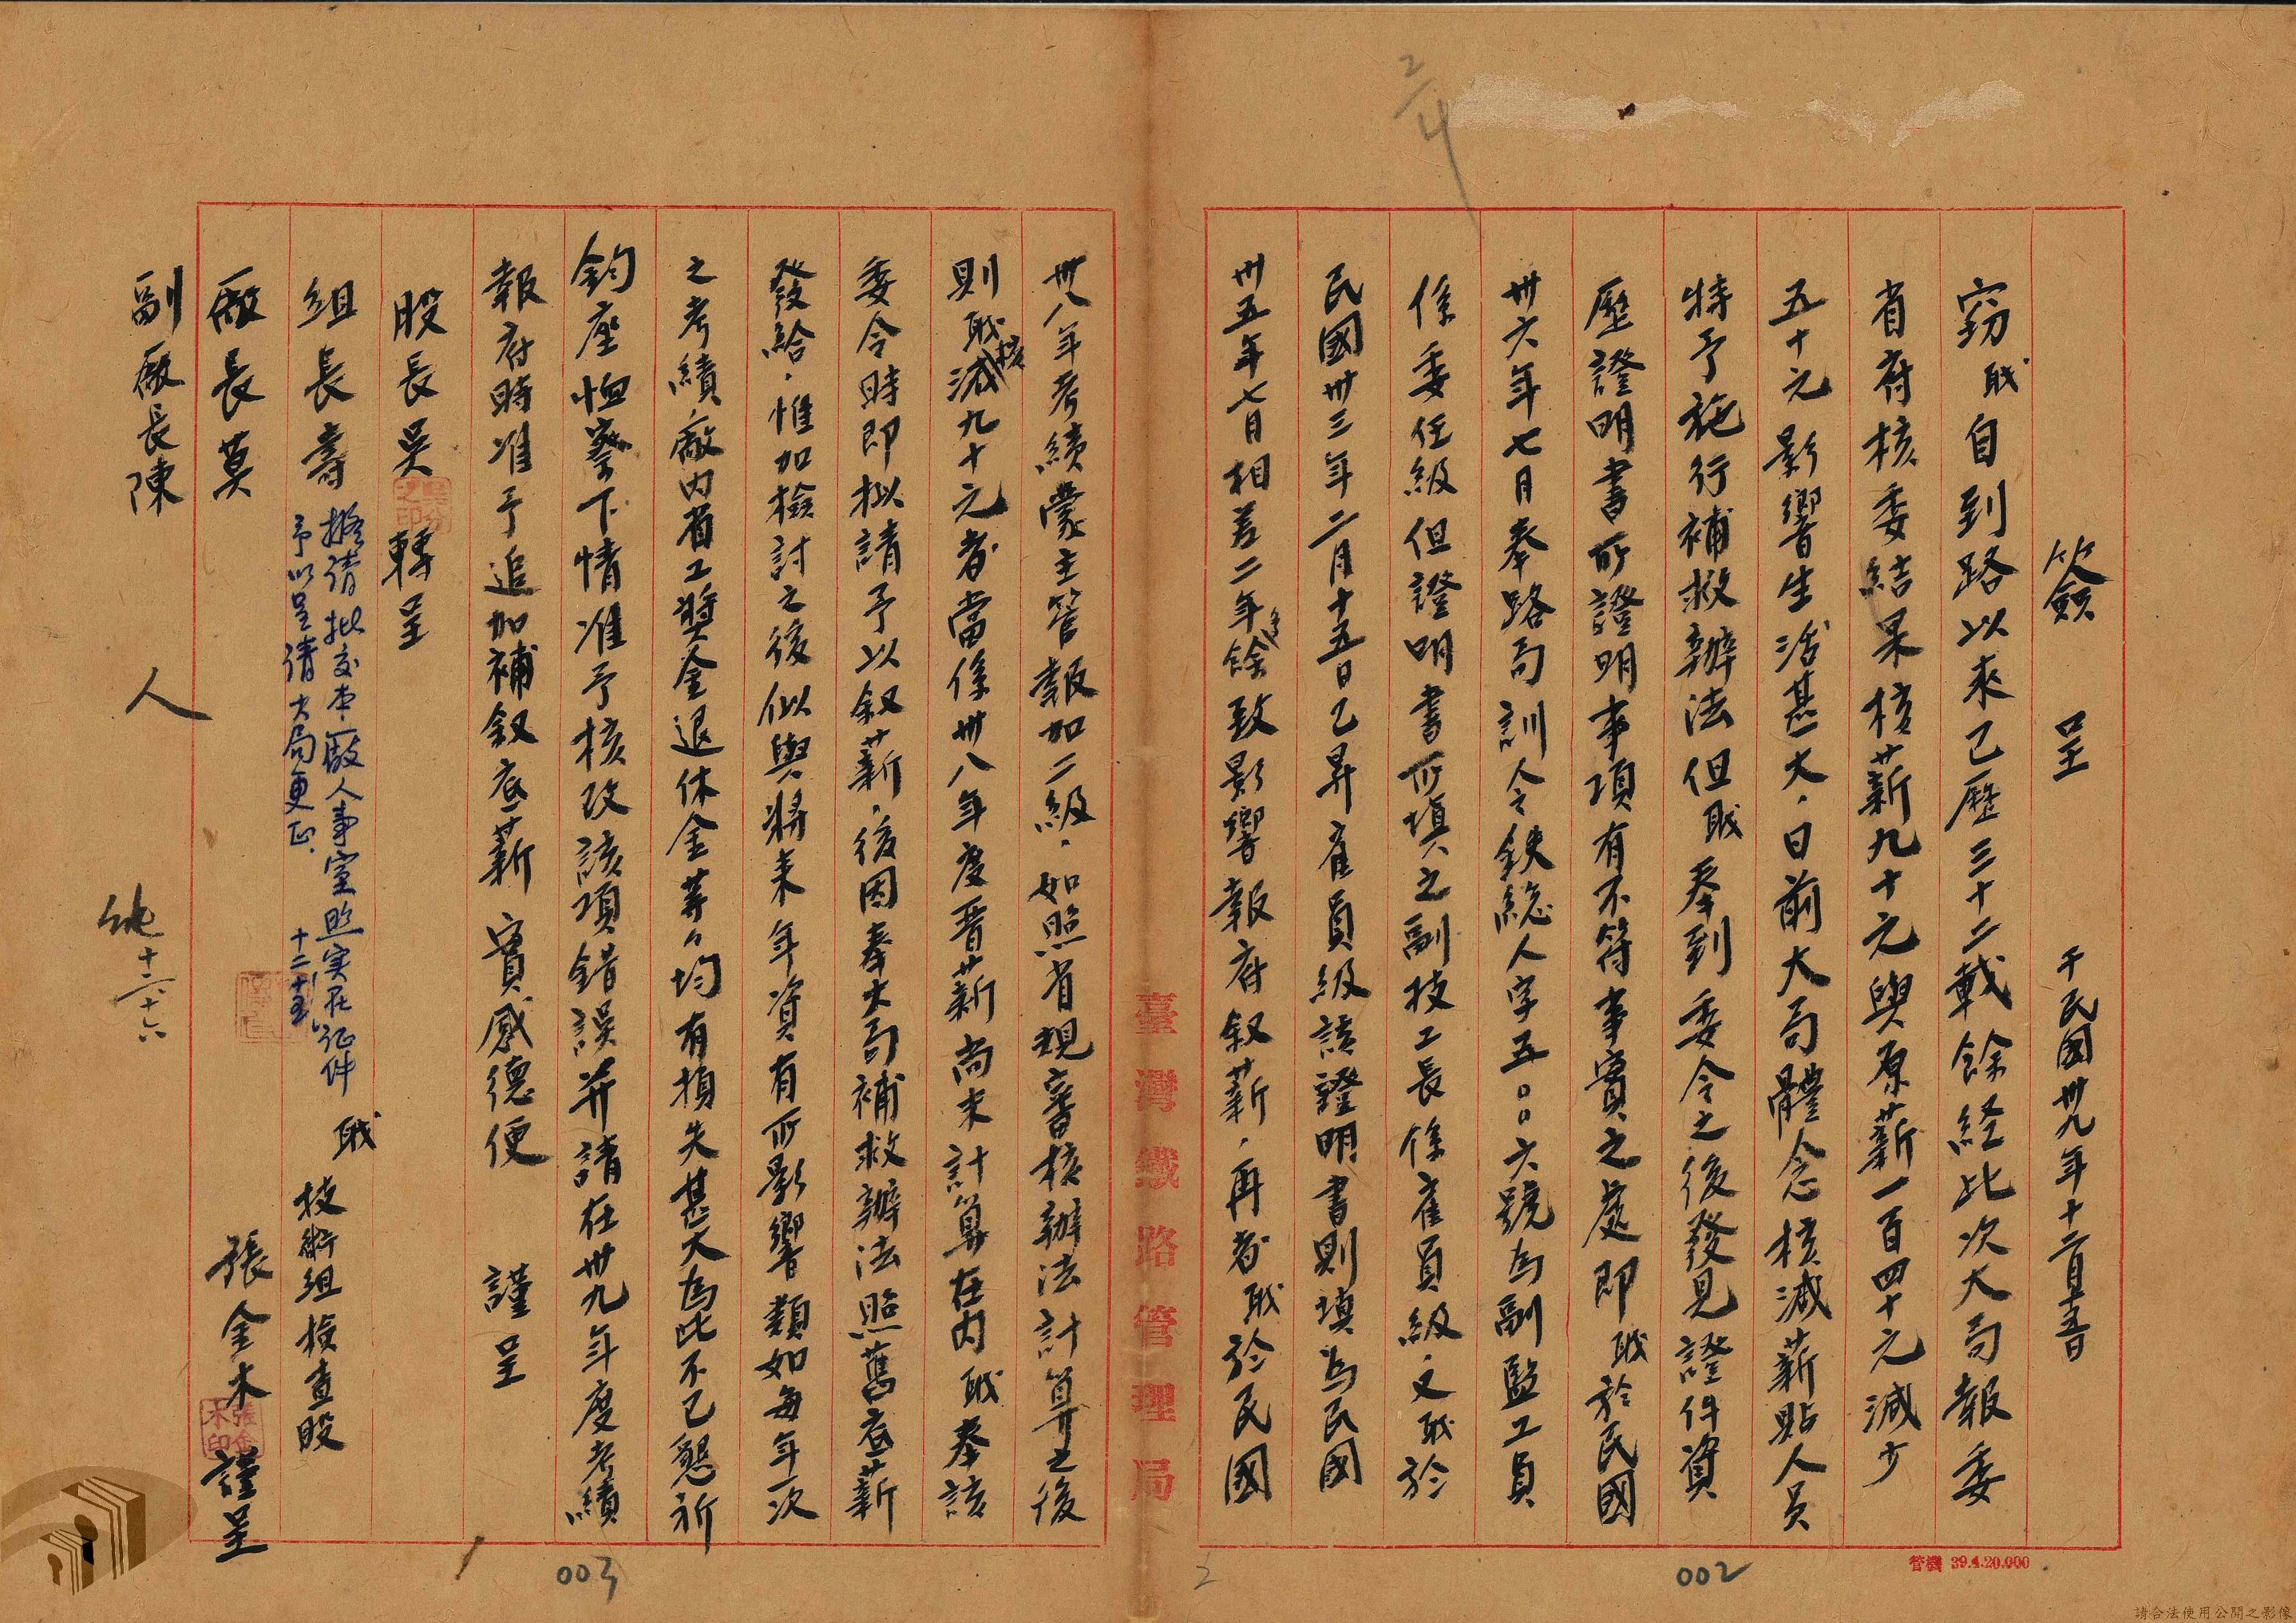 簽 呈 于民國卅九年十二月十五日
窃職自到路以來已歷三十二載餘経此次大局報委
省府核委結果核薪九十元與原薪一百四十元減少
五十元影響生活甚大．日前大局體念核減薪貼人員
特予施行補救辦法但職奉到委令之後發見證件資
歷證明書所證明事項有不符事實之處即職於民國
卅六年七月奉路局訓令鉄総人字五〇〇六號為副監工員
係委任級但證明書所填之副技工長係雇員級．又職於
民國卅三年二月十五日已昇雇員級該證明書則填為民國
卅五年七月相差二年餘致影響報府叙薪．再者職於民國
卅八年考績蒙主管報加二級．如照省規審核辦法計算之後
則職核減九十元者當係卅八年度晋薪尚未計算在内職奉該
委令時即拟請予以叙薪．後因奉大局補救辦法照舊底薪
發給．惟加檢討之後似與將來年資有所影響類如每年一次
之考績．廠内省工獎金退休金等々均有損失甚大為此不已懇祈
鈞座恤察下情准予核改該項錯誤并請在卅九年度考績
報府時准予追加補叙底薪實感德便 謹呈
股長吳 轉呈
組長壽
擬請批交本廠人事室照实在証件
予以呈请大局更正．
十二、十五、
廠長莫
副廠長陳
職 技術組檢查股
張金木 謹呈
張金木印
人
純 十二、十六
臺灣鐵路管理局
管機 39.4.20.000
2/4
002
003
2
請合法使用公開之影像